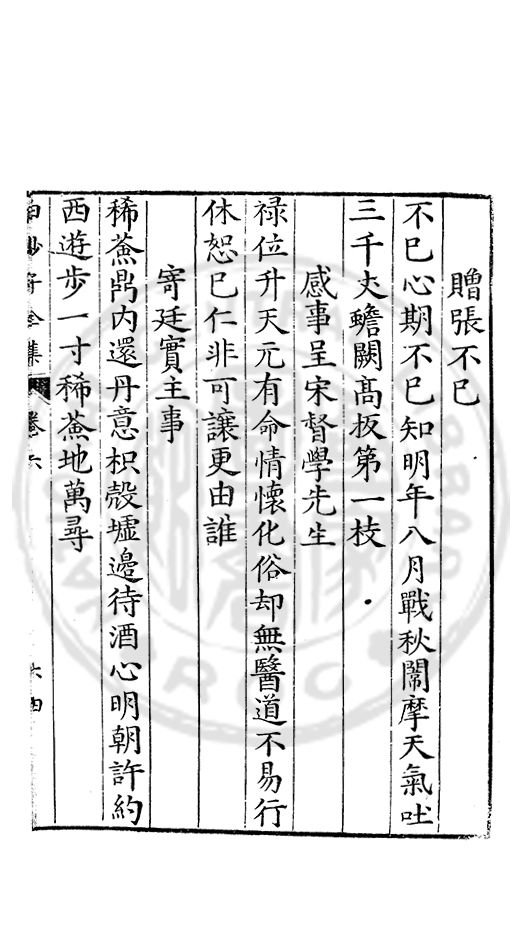 贈張不已
不已心期不已知明年八月戰秋闈摩天氣吐
三千丈蟾闕高扳第一枝
感事呈宋督學先生
祿位升天元有命情懷化俗却無醫道不易行
休恕已仁非可讓更由誰
寄廷實主事
稀薟鼎内還丹意枳殼墟邊待酒心明朝許約
西遊步一寸稀薟地萬尋